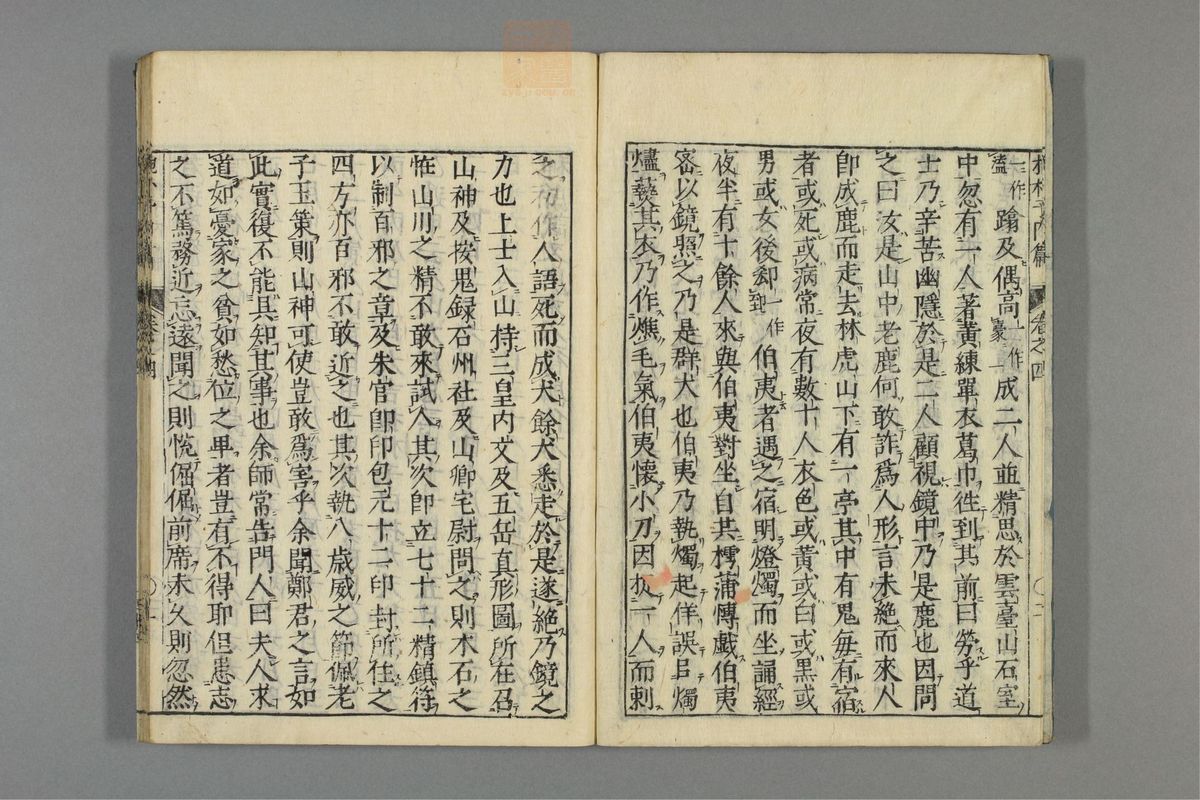 抱朴子內篇　卷之四　〇二
盍一作蹹及偶高一作豪成二人並精思於雲臺山石室
中忽有一人著黃練單衣葛巾徃到其前曰勞乎道
士乃辛苦幽隱於是二人顧視鏡中乃是鹿也因問
之曰汝是山中老鹿何敢詐爲人形言未絶而來人
卽成鹿而走去林虎山下有一亭其中有鬼每有宿
者或死或病常夜有數十人衣色或黃或白或黑或
男或女後郄一作郅伯夷者遇之宿明燈燭而坐誦經
夜半有十餘人來與伯夷對坐自共樗蒲愽戯伯夷
宻以鏡照之乃是群犬也伯夷乃執燭起佯誤呂燭
燼爇其衣乃作燋毛氣伯夷懷小刀因拔一人而刺
之初作人語死而成犬餘犬悉走於是遂絶乃鏡之
力也上士入山持三皇內文及五岳眞形圖所在召
山神及按鬼録石州社及山卿宅尉問之則木石之
恠山川之精不敢來試人其次卽立七十二精鎭符
以制百邪之章及朱官印印包元十二印封所住之
四方亦百邪不敢近之也其次執八歳威之節佩老
子玉策則山神可使豈敢爲害乎余聞鄭君之言如
此實復不能具知其事也余師常告門人曰夫人求
道如憂家之貧如愁位之畢者豈有不得耶但患志
之不篤務近忘遠聞之則恱倔倔前席未久則忽然